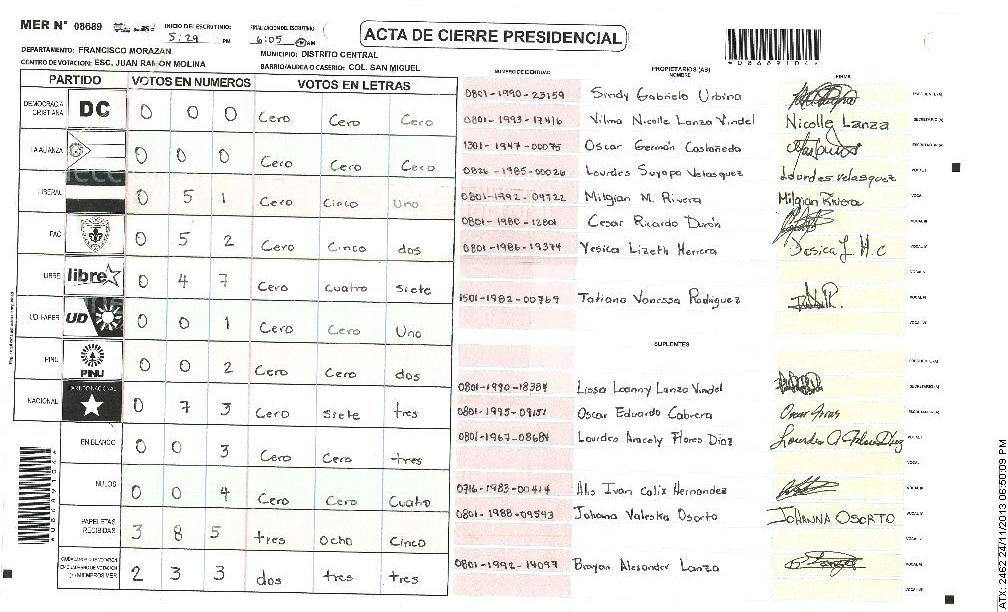 MER N° 08689
INICIO DEL ESCRUTINIO: 5:29 PM
FINALIZACION DEL ESCRUTINIO 6:05 AM
ACTA DE CIERRE PRESIDENCIAL
DEPARTAMENTO: FRANCISCO MORAZAN
MUNICIPIO: DISTRITO CENTRAL
CENTRO DE VOTACION: ESC. JUAN RAMON MOLINA
BARRIO/ALDEA O CASERIO: COL. SAN MIGUEL
PARTIDO VOTOS EN NUMEROS VOTOS EN LETRAS
DEMOCRACIA CRISTIANA DC 0 0 0 Cero Cero Cero
LA ALIANZA 0 0 0 Cero Cero Cero
LIBERAL 0 5 1 Cero Cinco Uno
PAC 0 5 2 Cero Cinco dos
LIBRE libre 0 4 7 Cero Cuatro Siete
UD-FAPER UD 0 0 1 Cero Cero Uno
PINU PINU 0 0 2 Cero Cero dos
NACIONAL 0 7 3 Cero Siete tres
EN BLANCO 0 0 3 Cero Cero tres
NULOS 0 0 4 Cero Cero Cuatro
PAPELETAS RECIBIDAS 3 8 5 tres Ocho Cinco
2 3 3 dos tres tres
NUMERO DE IDENTIDAD PROPIETARIOS (AS) NOMBRE FIRMA
0801-1990-23159 Sindy Gabriela Urbina
0801-1993-17416 Vilma Nicolle Lanza Vindel Nicolle Lanza
1301-1947-00075 Oscar Germán Castañeda
0826-1985-00026 Lourdes Suyapa Velasquez Lourdes Velasquez
0801-1992-04722 Milgian M. Rivera Milgian Rivera
0801-1980-12801 Cesar Ricardo Durón
0801-1986-19374 Yesica Lizeth Herrera
1501-1982-00769 Tatiana Vanessa Rodriguez
SUPLENTES
0801-1990-18384 Lissa Loanny Lanza Vindel
0801-1995-09151 Oscar Eduardo Cabrera
0801-1967-08684 Lourdes Aracely Flores Diaz
0716-1983-00414 Alis Ivan Calix Hernandez
0801-1988-09543 Johana Valeska Osorto JOHANNA OSORTO
0801-1992-14097 Brayan Alexander Lanza
ATX: 2462 24/11/2013 06:50:09 PM